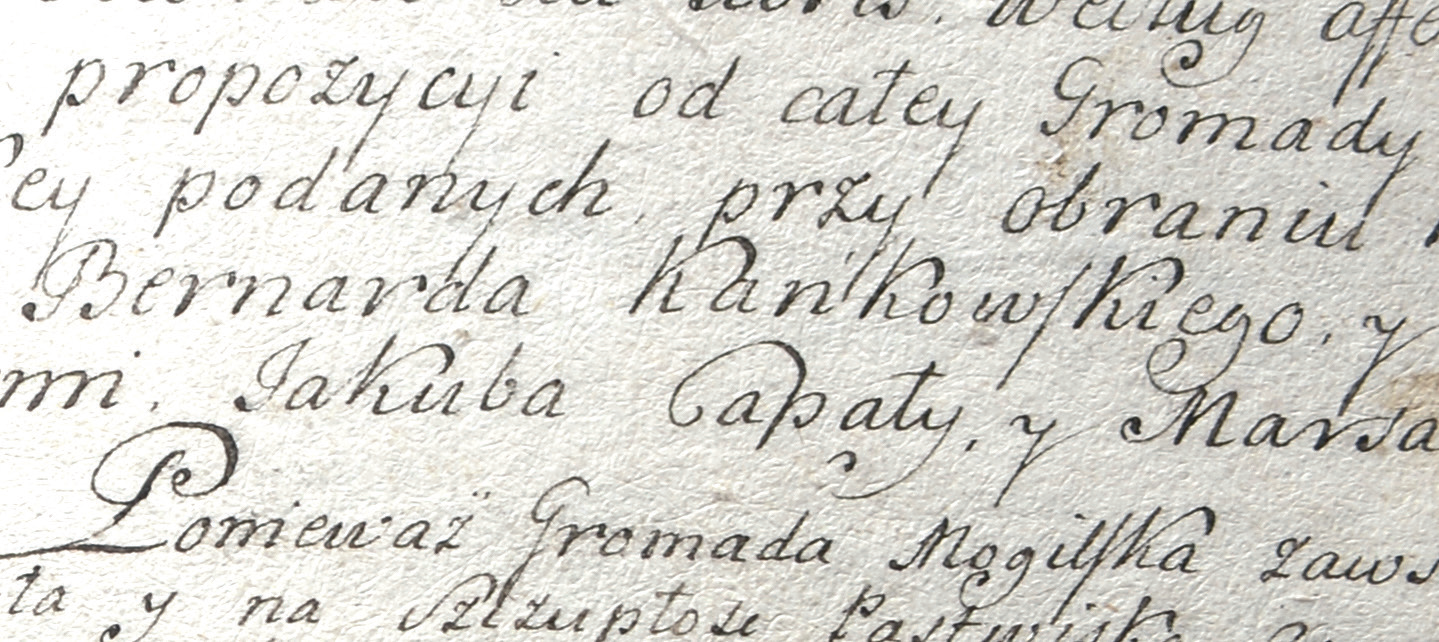 Według
propozycyi od całey Gromady
ey podanych, przy obraniu
Bernarda Kańkowskiego, y
mi, Jakuba Capały, y Marsa
Ponieważ Gromada Mogilska zaws
ta y na Szczupłość Pastwiska